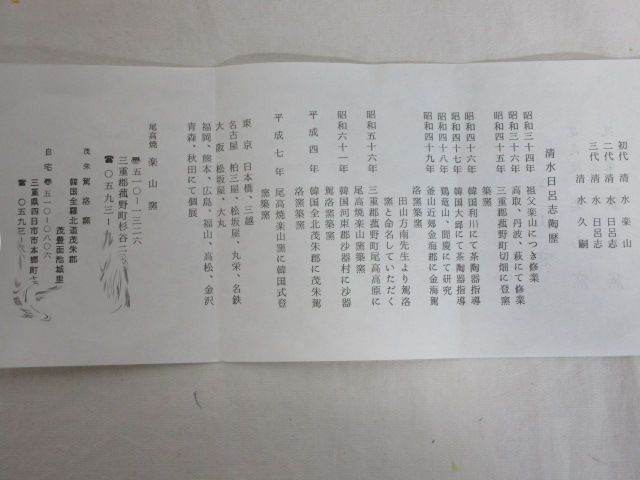 初代 清水楽山
二代 清水日呂志
三代 清水日呂志
清水久嗣
清水日呂志陶歴
昭和三十四年 祖父楽山につき修業
昭和三十六年 高取、丹波、萩にて修業
昭和四十五年 三重郡菰野町切畑に登窯
築窯
昭和四十六年 韓国利川にて茶陶器指導
昭和四十七年 韓国大邱にて茶陶器指導
昭和四十八年 鶏竜山、聞慶にて研究
昭和四十九年 釜山近郊金海郡に金海駕
洛窯築窯
田山方南先生より駕洛
窯と命名していただく
昭和五十六年 三重郡菰野町尾高高原に
尾高焼楽山窯築窯
昭和六十一年 韓国河東郡沙器村に沙器
駕洛窯築窯
平成四年 韓国全北茂朱郡に茂朱駕
洛窯築窯
平成七年 尾高焼楽山窯に韓国式登
窯築窯
東京 日本橋、三越
名古屋 柏三屋、松坂屋、丸栄、名鉄
大阪 松坂屋、大丸
福岡、熊本、広島、福山、高松、金沢
青森、秋田にて個展
尾高焼 楽山窯
〒五一〇-一三二六
三重郡菰野町杉谷二
☎〇五九三-
茂朱 駕洛窯
韓国全羅北道茂朱郡
茂豊面池城里
自宅 〒五一〇-〇八〇六
三重県四日市市本郷町七
☎〇五九三-